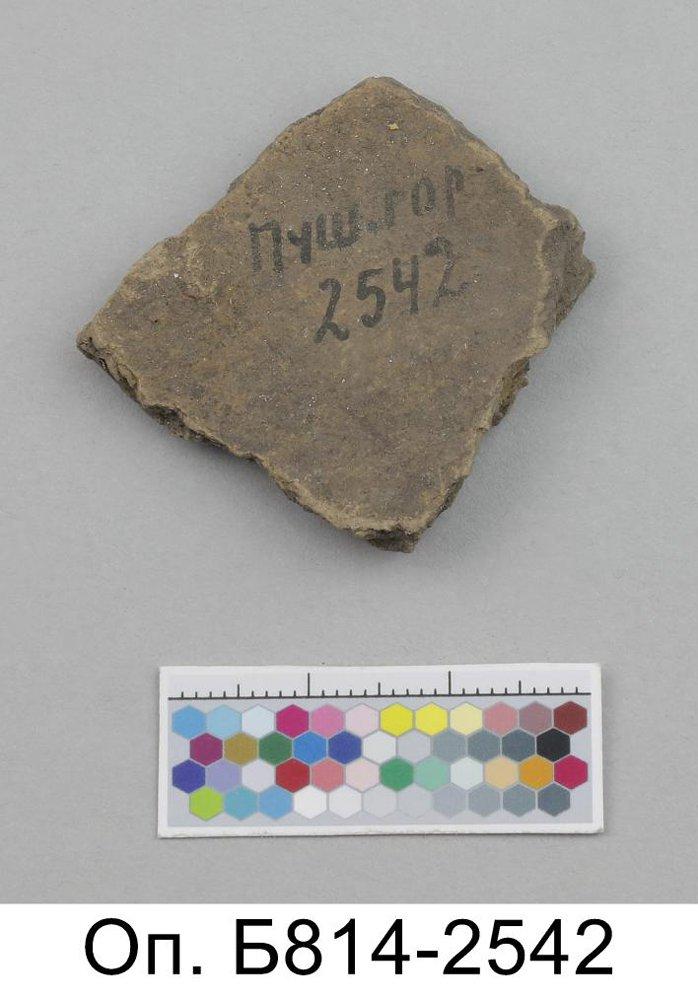 Пуш.гор
2542
Оп. Б814-2542